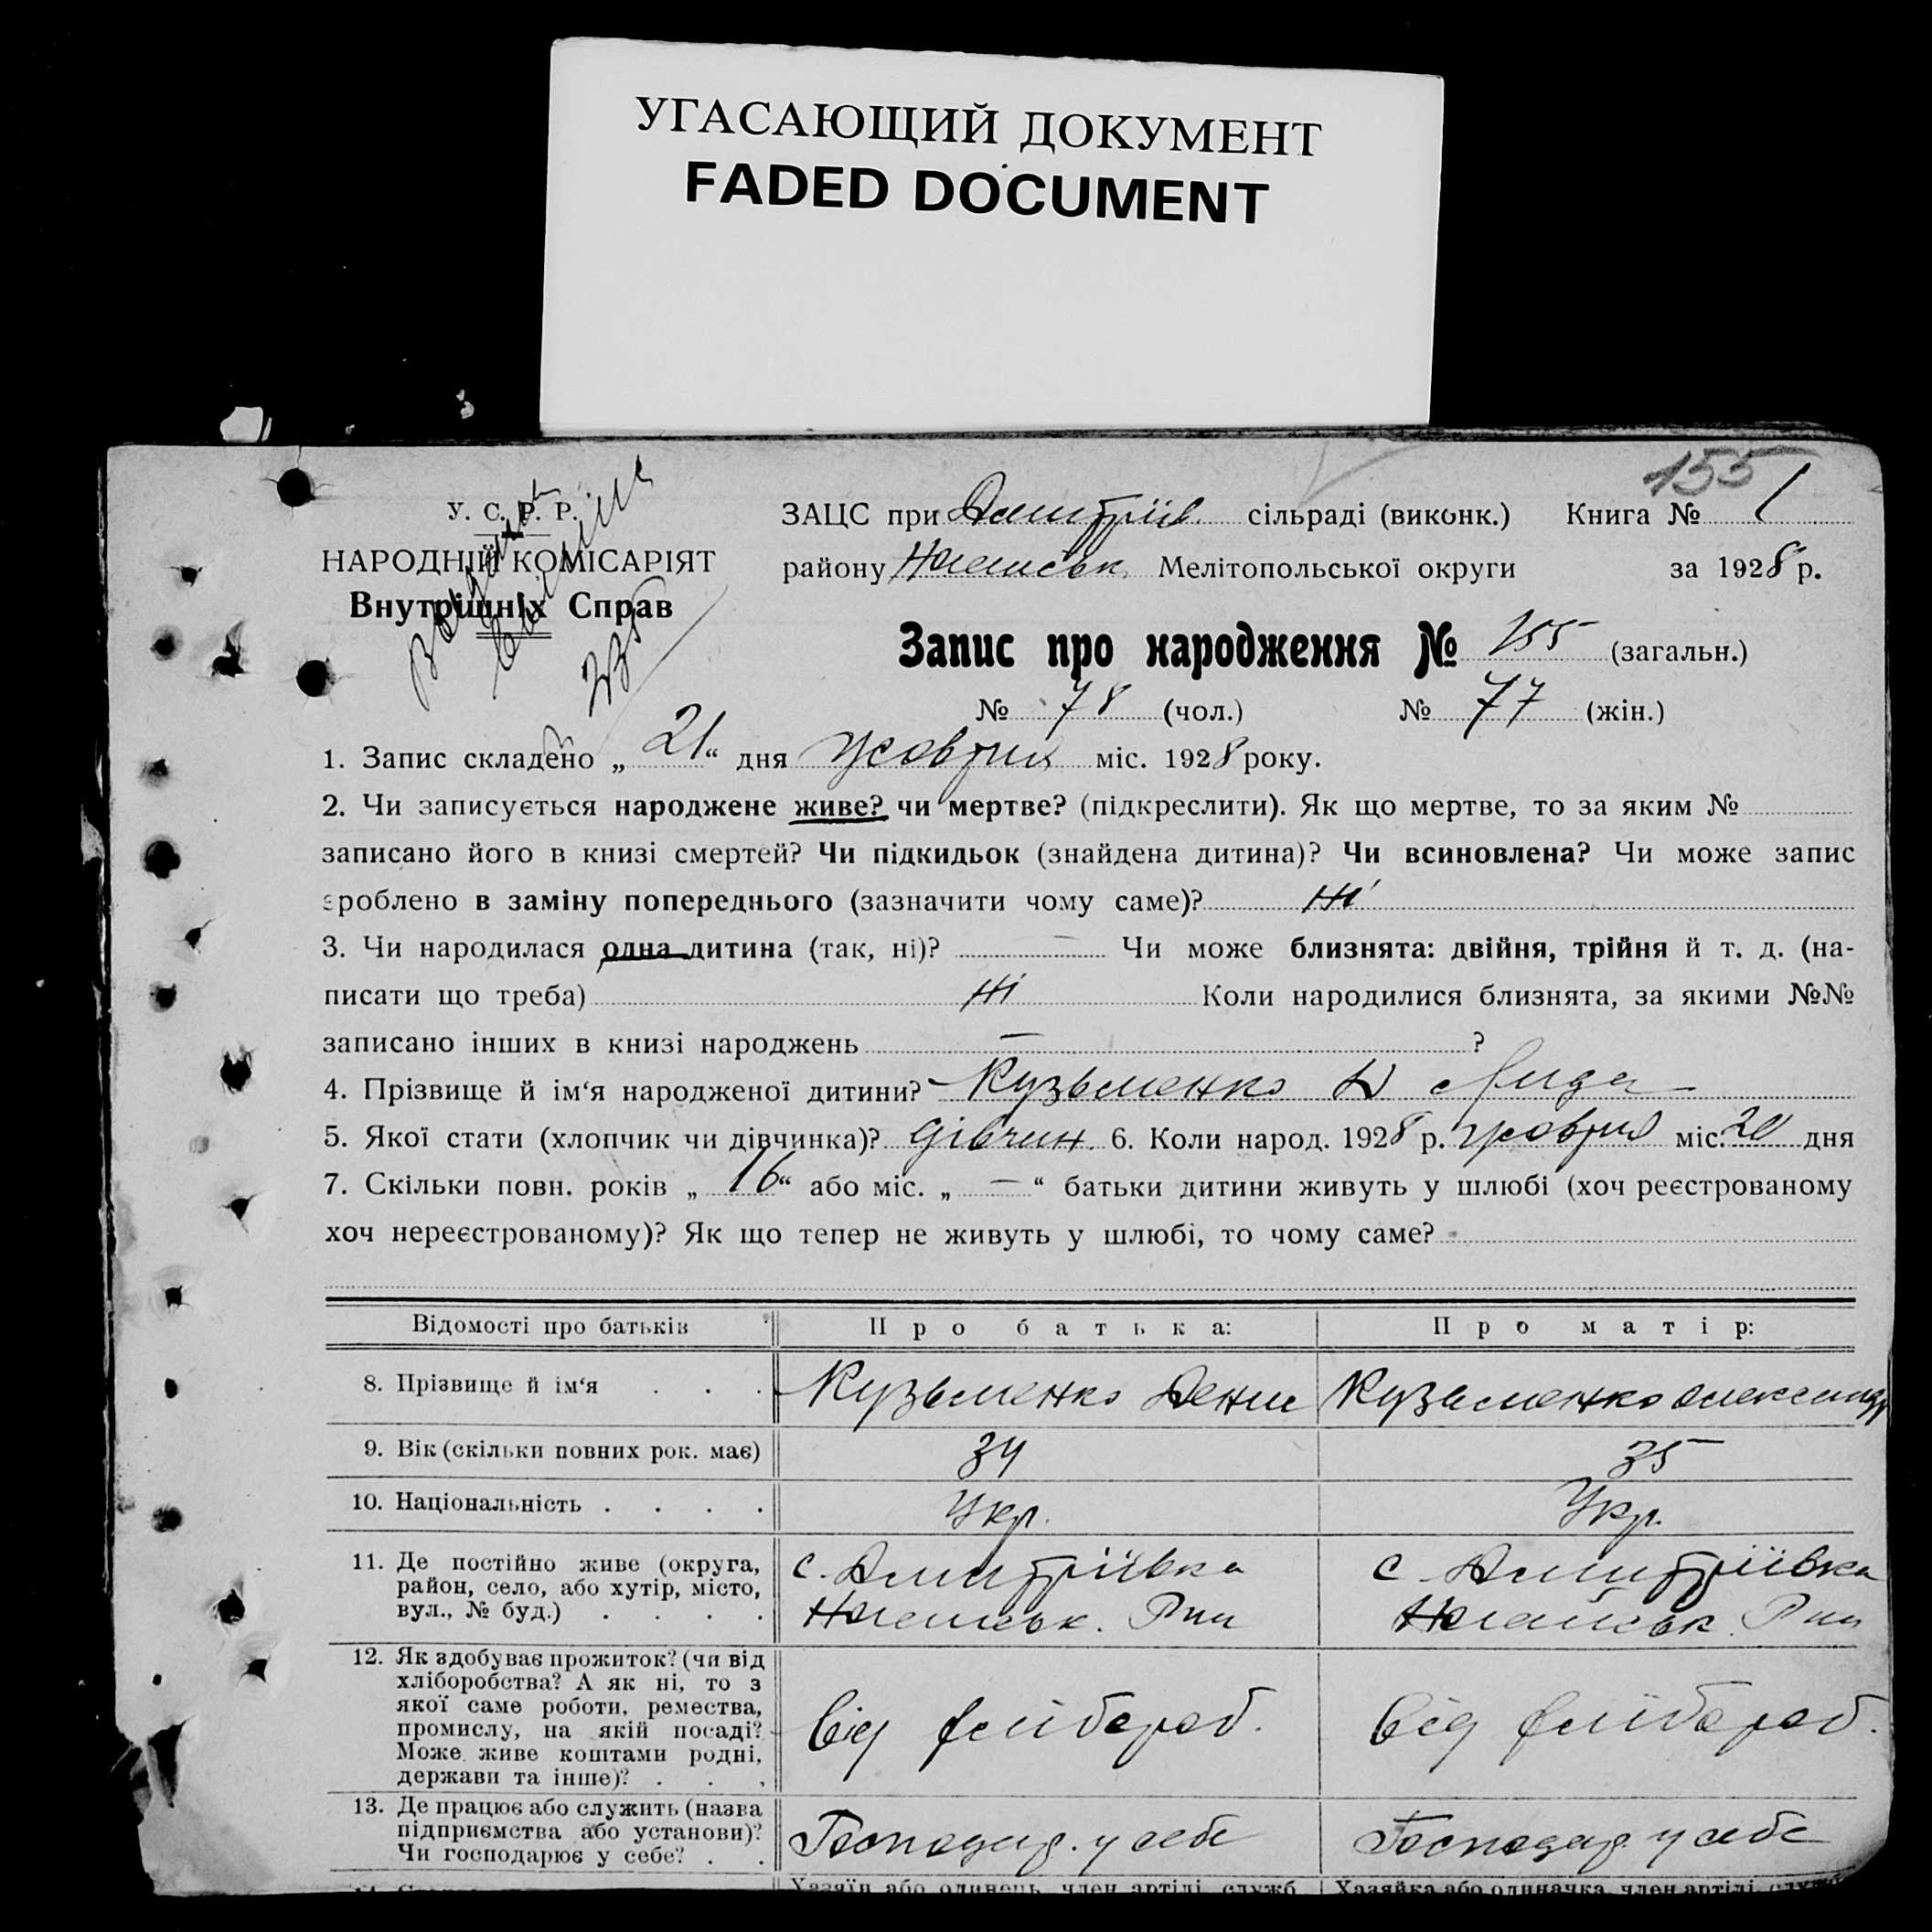 УГАСАЮЩИЙ ДОКУМЕНТ
FADED DOCUMENT
155
У. С. Р. Р.
НАРОДНІЙ КОМІСАРІЯТ
Внутрішніх Справ
ЗАЦС при Дмитріїв. сільраді (виконк.) Книга № 1
району Мелітопольської округи за 1928 р.
Запис про народження № 155 (загальн.)
№ 78 (чол.) № 77 (жін.)
1. Запис складено „ 21 “ дня жовтня міс. 1928 року.
2. Чи записується народжене живе? чи мертве? (підкреслити). Як що мертве, то за яким №
записано його в книзі смертей? Чи підкидьок (знайдена дитина)? Чи всиновлена? Чи може запис
зроблено в заміну попереднього (зазначити чому саме)? Ні
3. Чи народилася одна дитина (так, ні)? — Чи може близнята: двійня, трійня й т. д. (на-
писати що треба) Ні Коли народилися близнята, за якими №№
записано інших в книзі народжень — ?
4. Прізвище й ім‘я народженої дитини? Кузьменко Д Лида
5. Якої стати (хлопчик чи дівчинка)? дівчин. 6. Коли народ. 1928 р. жовтня міс. 20 дня
7. Скільки повн. років „ 16 “ або міс. „ — “ батьки дитини живуть у шлюбі (хоч реєстрованому
хоч нереєстрованому)? Як що тепер не живуть у шлюбі, то чому саме?
Відомості про батьків Про батька: Про матір:
8. Прізвище й ім‘я . . . Кузьменко Денис Кузьменко Александр
9. Вік (скільки повних рок. має) 34 35
10. Національність . . . . Укр. Укр.
11. Де постійно живе (округа,
район, село, або хутір, місто,
вул., № буд.) . . . .
с. Дмитріївка
Рну
с. Дмитріївка
Рну
12. Як здобуває прожиток? (чи від
хліборобства? А як ні, то з
якої саме роботи, ремества,
промислу, на якій посаді?
Може живе коштами родні,
держави та інше)? . . .
від хлібороб. від хлібороб.
13. Де працює або служить (назва
підприємства або установи)?
Чи господарює у себе? . .
Господар. у себе Господар. у себе
Хазяїн або одинець, член артілі, служб. Хазяйка або одиначка, член артілі,